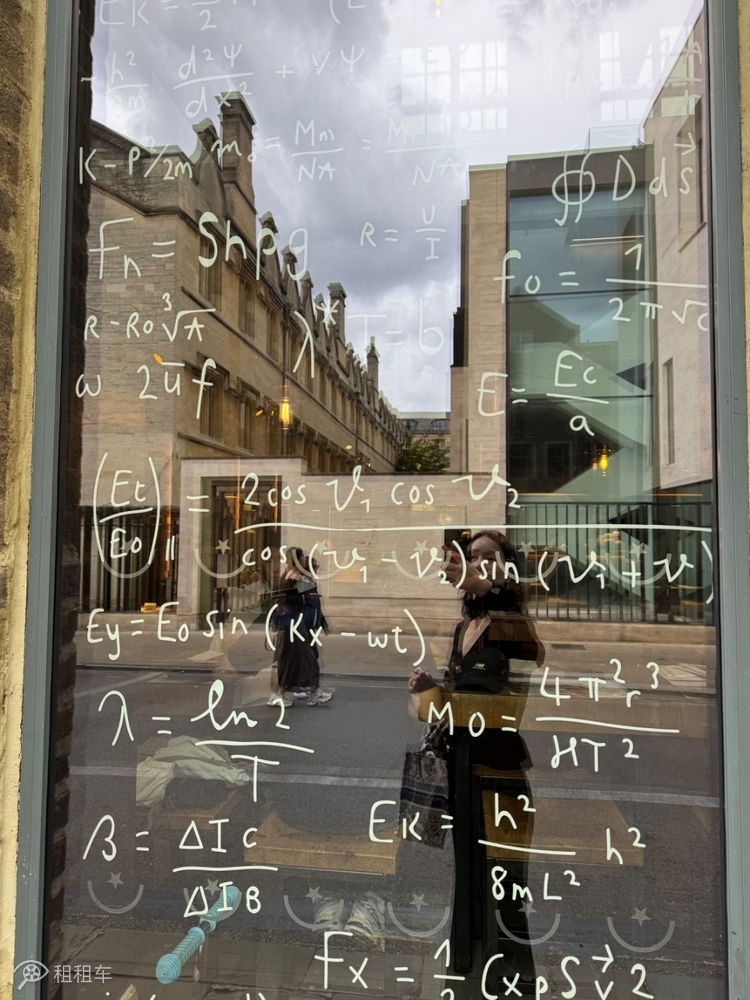 Ek = /2
- ħ²/2m d²Ψ/dx² + VΨ
K - P²/2m m₀ = Mm/NA = Mm/NA
∯ D dS⃗
Fn = Shρg
R = U/I
fo = 1/2π√C
R - Ro ³√A
λ* T = b
ω 2ūf
E = Ec/a
(Et/Eo)∥ = 2cos ϑ₁ cos ϑ₂/cos(ϑ₁ - ϑ₂) sin(ϑ₁ + ϑ)
Ey = Eo sin (Kx - wt)
λ = ln2/T
MO = 4π²r³/ϰT²
β = ΔIc/ΔIB
Ek = h²/8mL² h²
Fx = 1/2 CxρSv⃗2
租租车